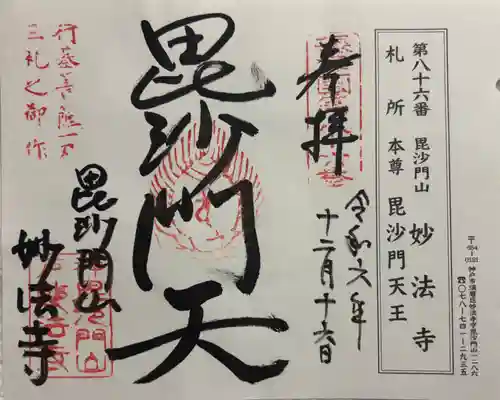 第八十六番 毘沙門山 妙法寺
札所本尊 毘沙門天王
〒654-0121 神戸市須磨区妙法寺字毘沙門山一二八六
☎〇七八-七四一-二九三五
奉拝
令和六年
十二月十六日
毘沙門天
毘沙門山
妙法寺
行基菩薩一刀
三礼之御作